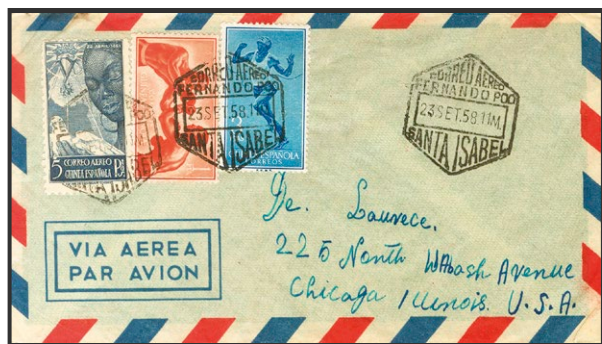 5 CORREO AEREO Pts
GUINEA ESPAÑOLA
CORREO AEREO
FERNANDO POO
23 SET.58.11M.
SANTA ISABEL
ESPAÑOLA
CORREOS
CORREO AEREO
FERNANDO POO
23 SET.58.11M.
SANTA ISABEL
VIA AEREA
PAR AVION
De. Lauvece.
225 North Wabash Avenue
Chicaga Illinois. U.S.A.